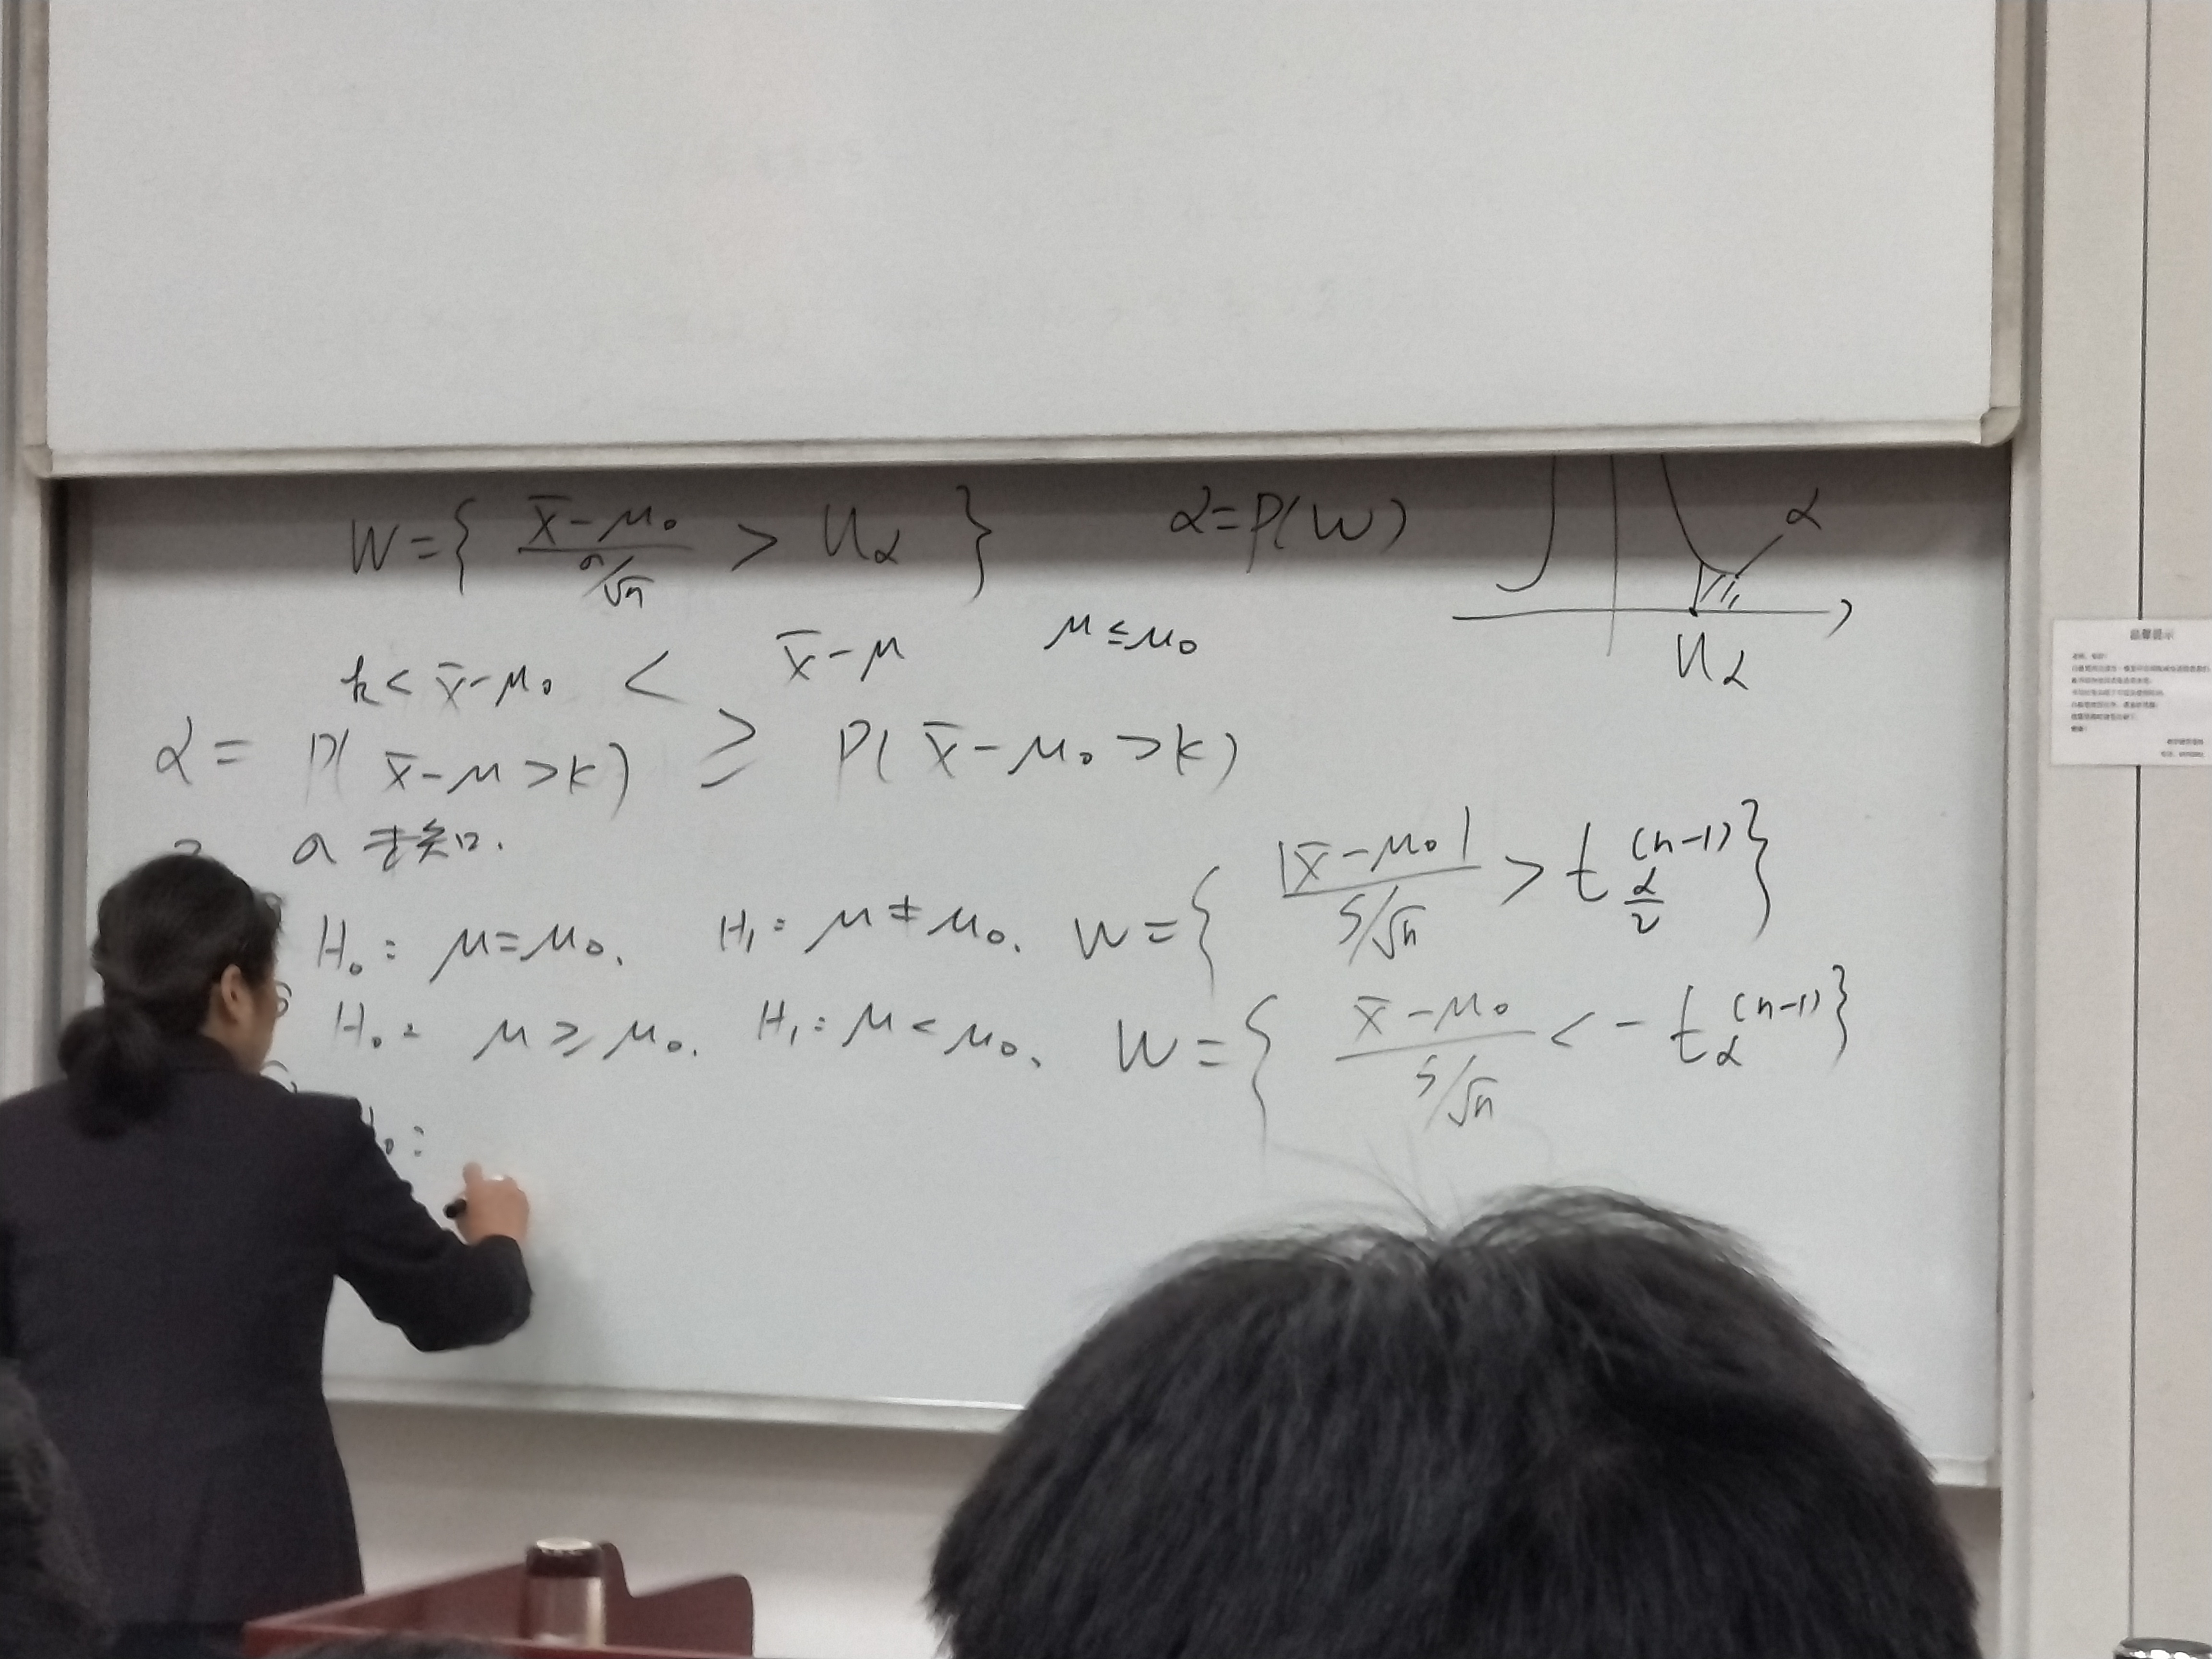 W={ (x̄-μ₀)/(σ/√n) > u_α }   α=P(W)   α
u_α
k< x̄-μ₀ < x̄-μ   μ≤μ₀
α = P( x̄-μ >k) ≥ P( x̄-μ₀ >k)
σ 未知.
H₀: μ=μ₀.   H₁: μ≠μ₀.   W={ |x̄-μ₀|/(S/√n) > t_{α/2}^{(n-1)} }
H₀: μ≥μ₀.   H₁: μ<μ₀.   W={ (x̄-μ₀)/(S/√n) < -t_α^{(n-1)} }
H₀:
温馨提示